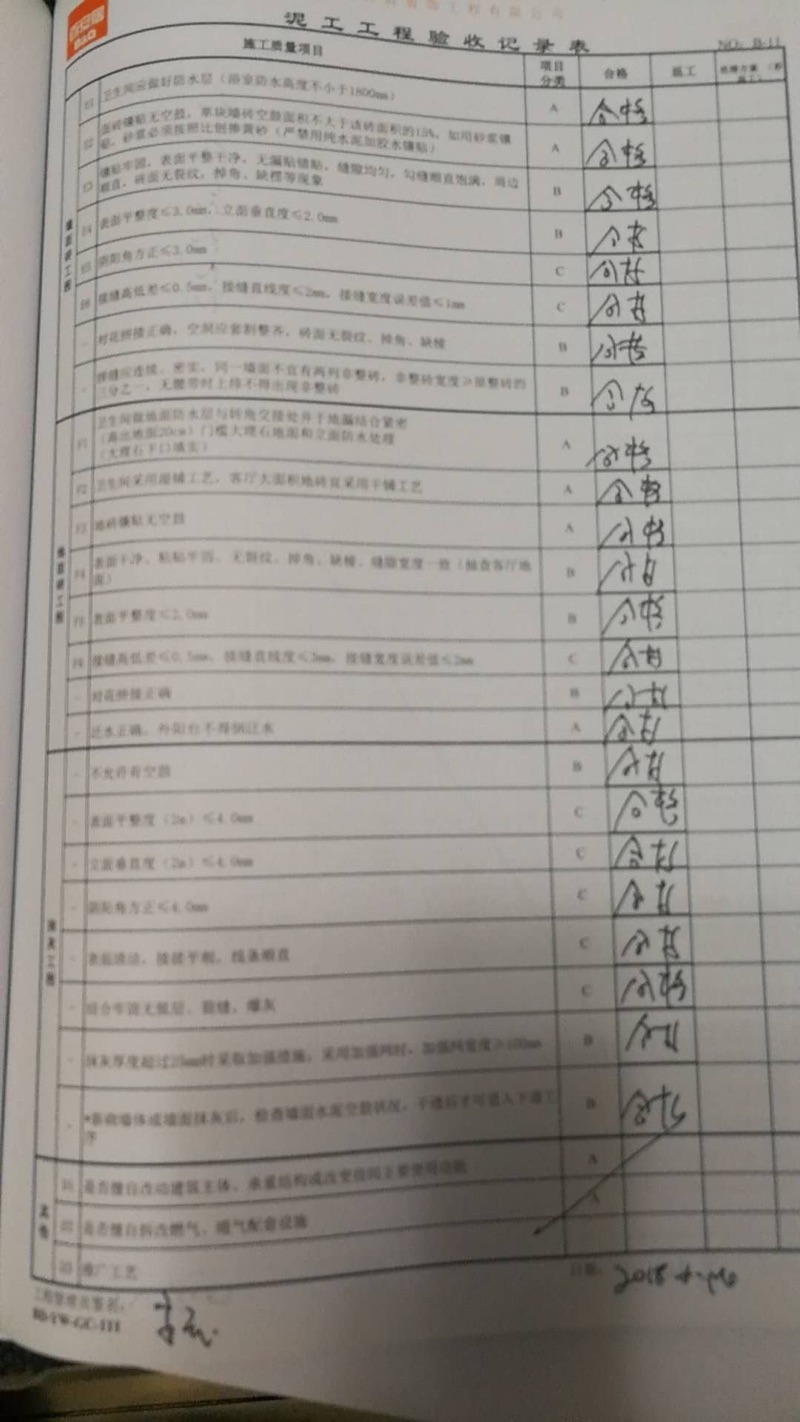 百安居
B&Q
泥工工程验收记录表
NO: B-11
施工质量项目 项目分类 合格 返工
E1 卫生间应做好防水层（浴室防水高度不小于1800mm） A 合格
E2 面砖镶贴无空鼓，单块墙砖空鼓面积不大于该砖面积的15%，如用砂浆镶
贴，砂浆必须按照比例掺黄砂（严禁用纯水泥加胶水镶贴） A 合格
E3 镶贴牢固，表面平整干净，无漏贴错贴，缝隙均匀，勾缝顺直饱满，周边
顺直，砖面无裂纹，掉角、缺楞等现象 B 合格
E4 表面平整度≤3.0mm，立面垂直度≤2.0mm B 合格
E5 阴阳角方正≤3.0mm C 合格
E6 接缝高低差≤0.5mm，接缝直线度≤2mm，接缝宽度误差值≤1mm C 合格
- 对花拼接正确，空洞应套割整齐，砖面无裂纹、掉角、缺棱 B 合格
- 拼缝应连续、密实，同一墙面不宜有两列非整砖，非整砖宽度≥原整砖的
三分之一，无腰带时上排不得出现非整砖 B 合格
墙面砖工程
F1 卫生间做地面防水层与转角交接处并于地漏结合紧密
（高出地面20cm）门槛大理石地面和立面防水处理
（大理石下口填实） A 合格
F2 卫生间采用湿铺工艺，客厅大面积地砖宜采用干铺工艺 A 合格
F3 地砖镶贴无空鼓 A 合格
F4 表面干净、粘贴牢固、无裂纹、掉角、缺棱、缝隙宽度一致（抽查客厅地
面） B 合格
F5 表面平整度≤2.0mm B 合格
F6 接缝高低差≤0.5mm，接缝直线度≤3mm，接缝宽度误差值≤2mm C 合格
- 对花拼接正确 B 合格
- 泛水正确，外阳台不得倒泛水 A 合格
地面砖工程
- 不允许有空鼓 B 合格
- 表面平整度（2m）≤4.0mm C 合格
- 立面垂直度（2m）≤4.0mm C 合格
- 阴阳角方正≤4.0mm C 合格
- 表面滑动，接搓平顺，线条顺直 C 合格
- 结合牢固无脱层、裂缝，爆灰 C 合格
- 抹灰厚度超过35mm时采取加强措施，采用加强网时，加强网宽度≥100mm B 合格
- *新砌墙体或墙面抹灰后，检查墙面水泥空鼓状况，干透后才可进入下道工
序 B 合格
抹灰工程
是否擅自改动建筑主体、承重结构或改变房间主要使用功能 A
是否擅自拆改燃气、暖气配套设施 A
推广工艺
其他
工程管理员签名：
日期：2018
BD-YW-GC-111